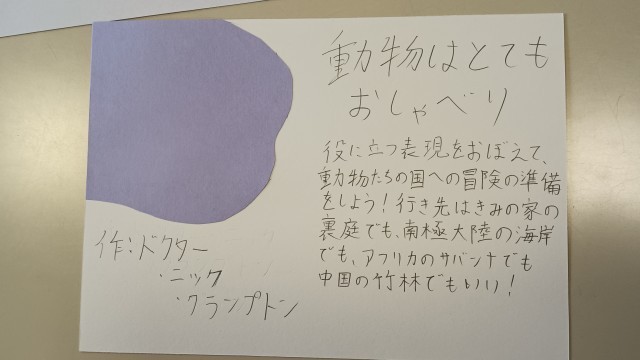 動物はとても
おしゃべり
役に立つ表現をおぼえて、
動物たちの国への冒険の準備
をしよう！行き先はきみの家の
裏庭でも、南極大陸の海岸
でも、アフリカのサバンナでも
中国の竹林でもいい！
作:ドクター
・ニック
・クランプトン